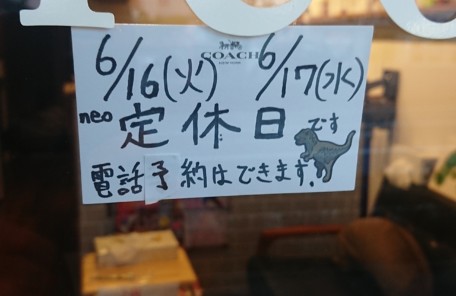 6/16(火) 6/17(水)
COACH
neo 定休日です
電話予約はできます。